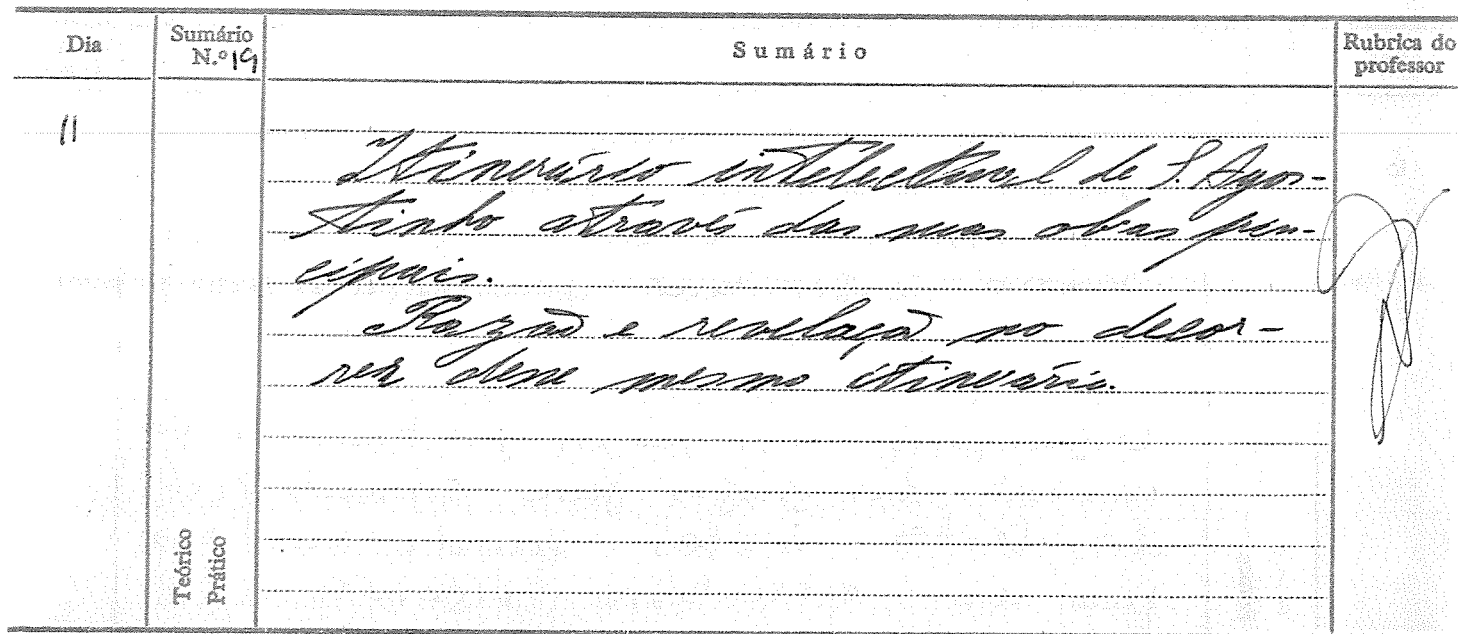 Dia
Sumário
N.º 19
Sumário
Rubrica do
professor
11
Itinerário intelectual de S. Agos-
tinho através das suas obras prin-
cipais.
Razão e revelação no decor-
rer desse mesmo itinerário.
Teórico
Prático